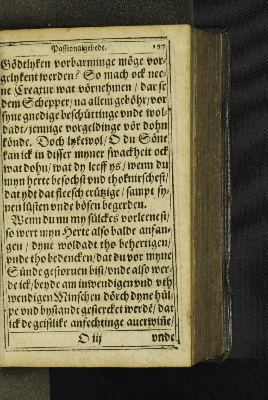 Passionalgebede. 197
Gödtlyken vorbarminge möge vor-
gelykent werden? So mach ock nee-
ne Creatur wat vörnehmen / dar se
dem Schepper / na allem geböhr / vor
syne gnedige beschüttinge vnde wol-
dadt / jennige vorgeldinge vör dohn
könde. Doch lykewol / O du Söne
kan ick in disser myner swackheit ock
wat dohn / wat dy leeff ys / wenn du
myn herte besöchst vnd thoknirschest /
dat ydt dat fleesch crützige / sampt sy-
nen lüsten vnde bösen begerden.
Wenn du nu my sülckes vorleenest /
so wert myn Herte also balde anfan-
gen / dyne woldadt tho behertigen /
vnde tho bedencken / dat du vor myne
Sünde gestoruen bist / vnde also wer-
de ick / beyde am inwendigen vnd vth
wendigen Minschen dörch dyne hül-
pe vnd bystandt gestercket werdē / dat
ick de geistlike anfechtinge auerwiñe /
O iij vnde